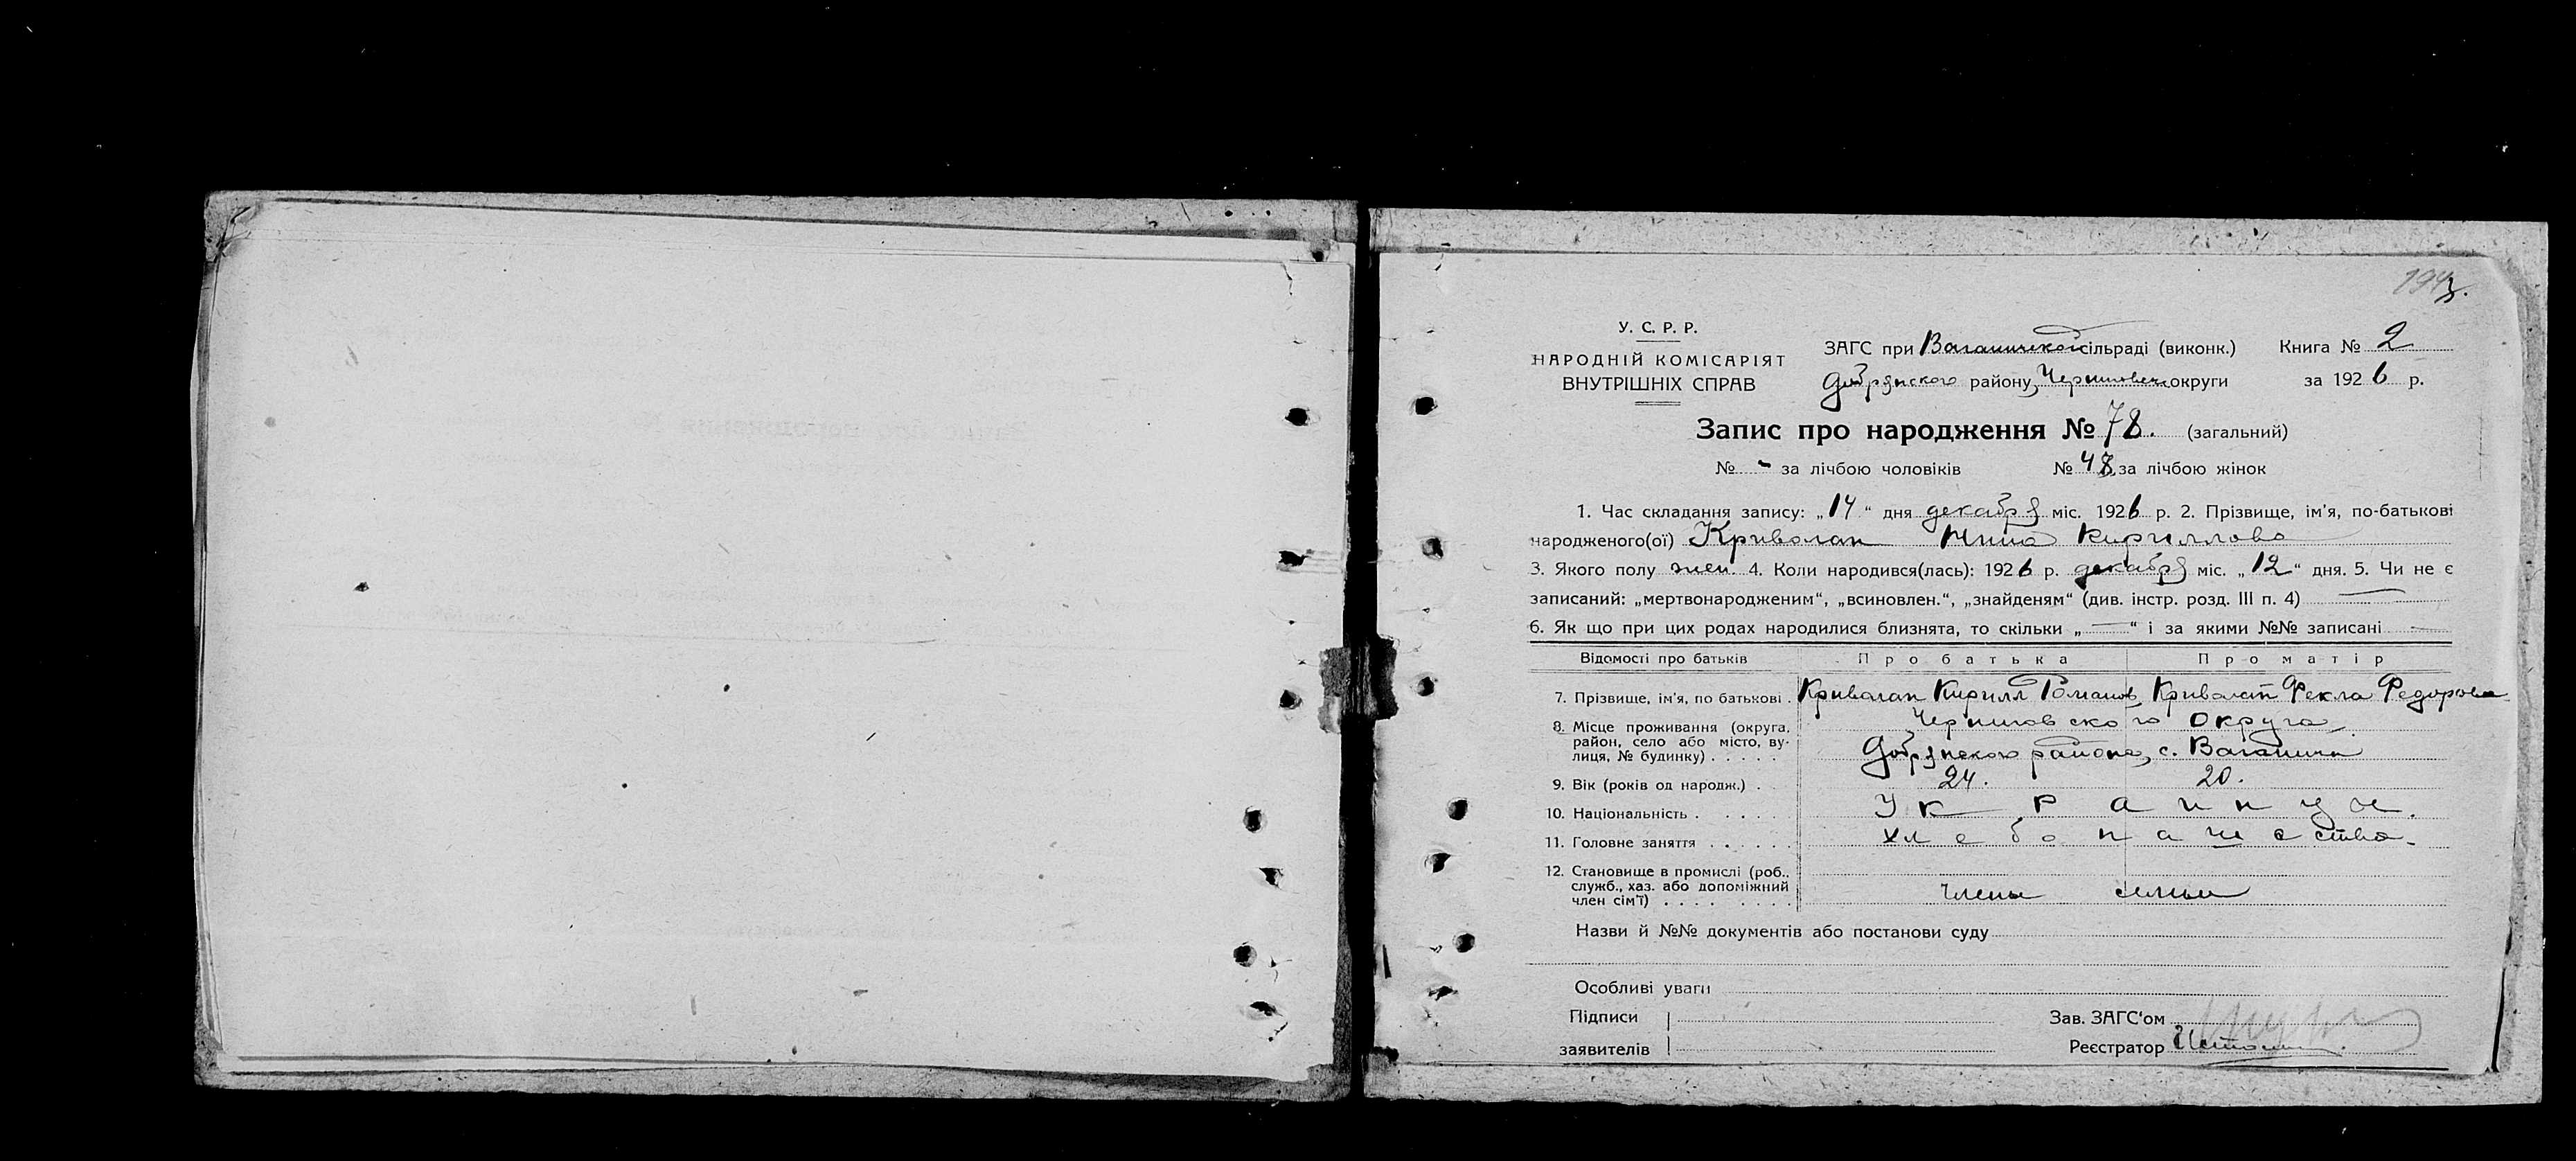 194
У. С. Р. Р.
НАРОДНІЙ КОМІСАРІЯТ
ВНУТРІШНІХ СПРАВ
ЗАГС при Ваганичской сільраді (виконк.) Книга № 2
Добрянского району, Черниговск. округи за 1926 р.
Запис про народження № 78. (загальний)
№ - за лічбою чоловіків № 48 за лічбою жінок
1. Час складання запису: „14" дня декабря міс. 1926 р. 2. Прізвище, ім'я, по-батькові
народженого(ої) Криволап Нина Кириллова
3. Якого полу жен. 4. Коли народився(лась): 1926 р. декабря міс. „12" дня. 5. Чи не є
записаний: „мертвонародженим", „всиновлен.", „знайденям" (див. інстр. розд. III п. 4) —
6. Як що при цих родах народилися близнята, то скільки „—" і за якими №№ записані —
Відомості про батьків Про батька Про матір
7. Прізвище, ім'я, по батькові . Криволап Кирилл Романов Криволап Фекла Федорова
8. Місце проживання (округа, район, село або місто, вулиця, № будинку) . . . . . Черниговского округа,
Добрянского района, с. Ваганичи
9. Вік (років од народж.) . 24. 20.
10. Національність . . . . . . Украинцы.
11. Головне заняття . . . . . . хлебопашество.
12. Становище в промислі (роб., служб., хаз. або допоміжний член сім'ї) . . . . . . . . члены семьи
Назви й №№ документів або постанови суду
Особливі уваги
Підписи
заявителів
Зав. ЗАГС'ом
Реєстратор